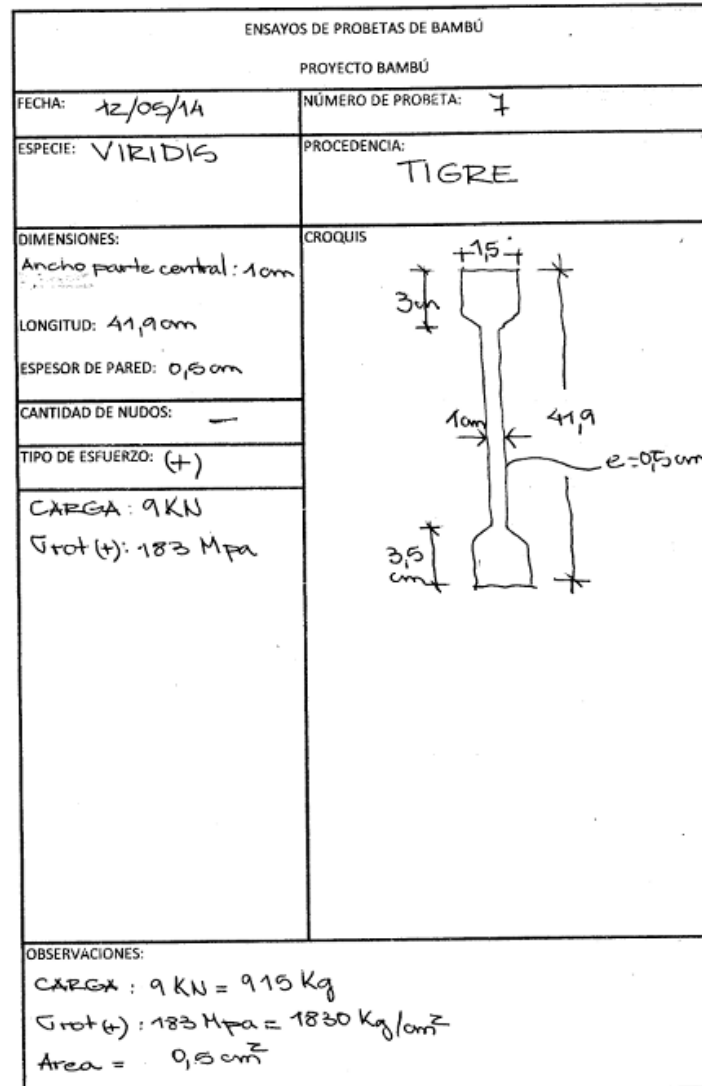 ENSAYOS DE PROBETAS DE BAMBÚ
PROYECTO BAMBÚ
FECHA: 12/05/14
NÚMERO DE PROBETA: 7
ESPECIE: VIRIDIS
PROCEDENCIA:
TIGRE
DIMENSIONES:
Ancho parte central: 1cm
LONGITUD: 41,9cm
ESPESOR DE PARED: 0,5cm
CANTIDAD DE NUDOS: —
TIPO DE ESFUERZO: (+)
CARGA: 9KN
σrot (+): 183 Mpa
CROQUIS
1,5
3cm
1cm
41,9
e=0,5cm
3,5
cm
OBSERVACIONES:
CARGA: 9 KN = 915 Kg
σrot (+): 183 Mpa = 1830 Kg/cm²
Area = 0,5 cm²